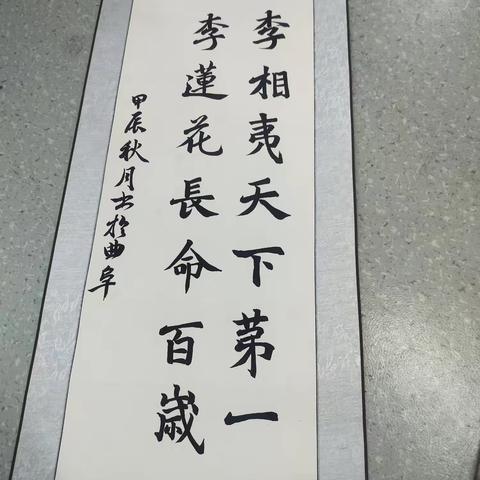 李相夷天下第一
李蓮花長命百歲
甲辰秋月书於曲阜